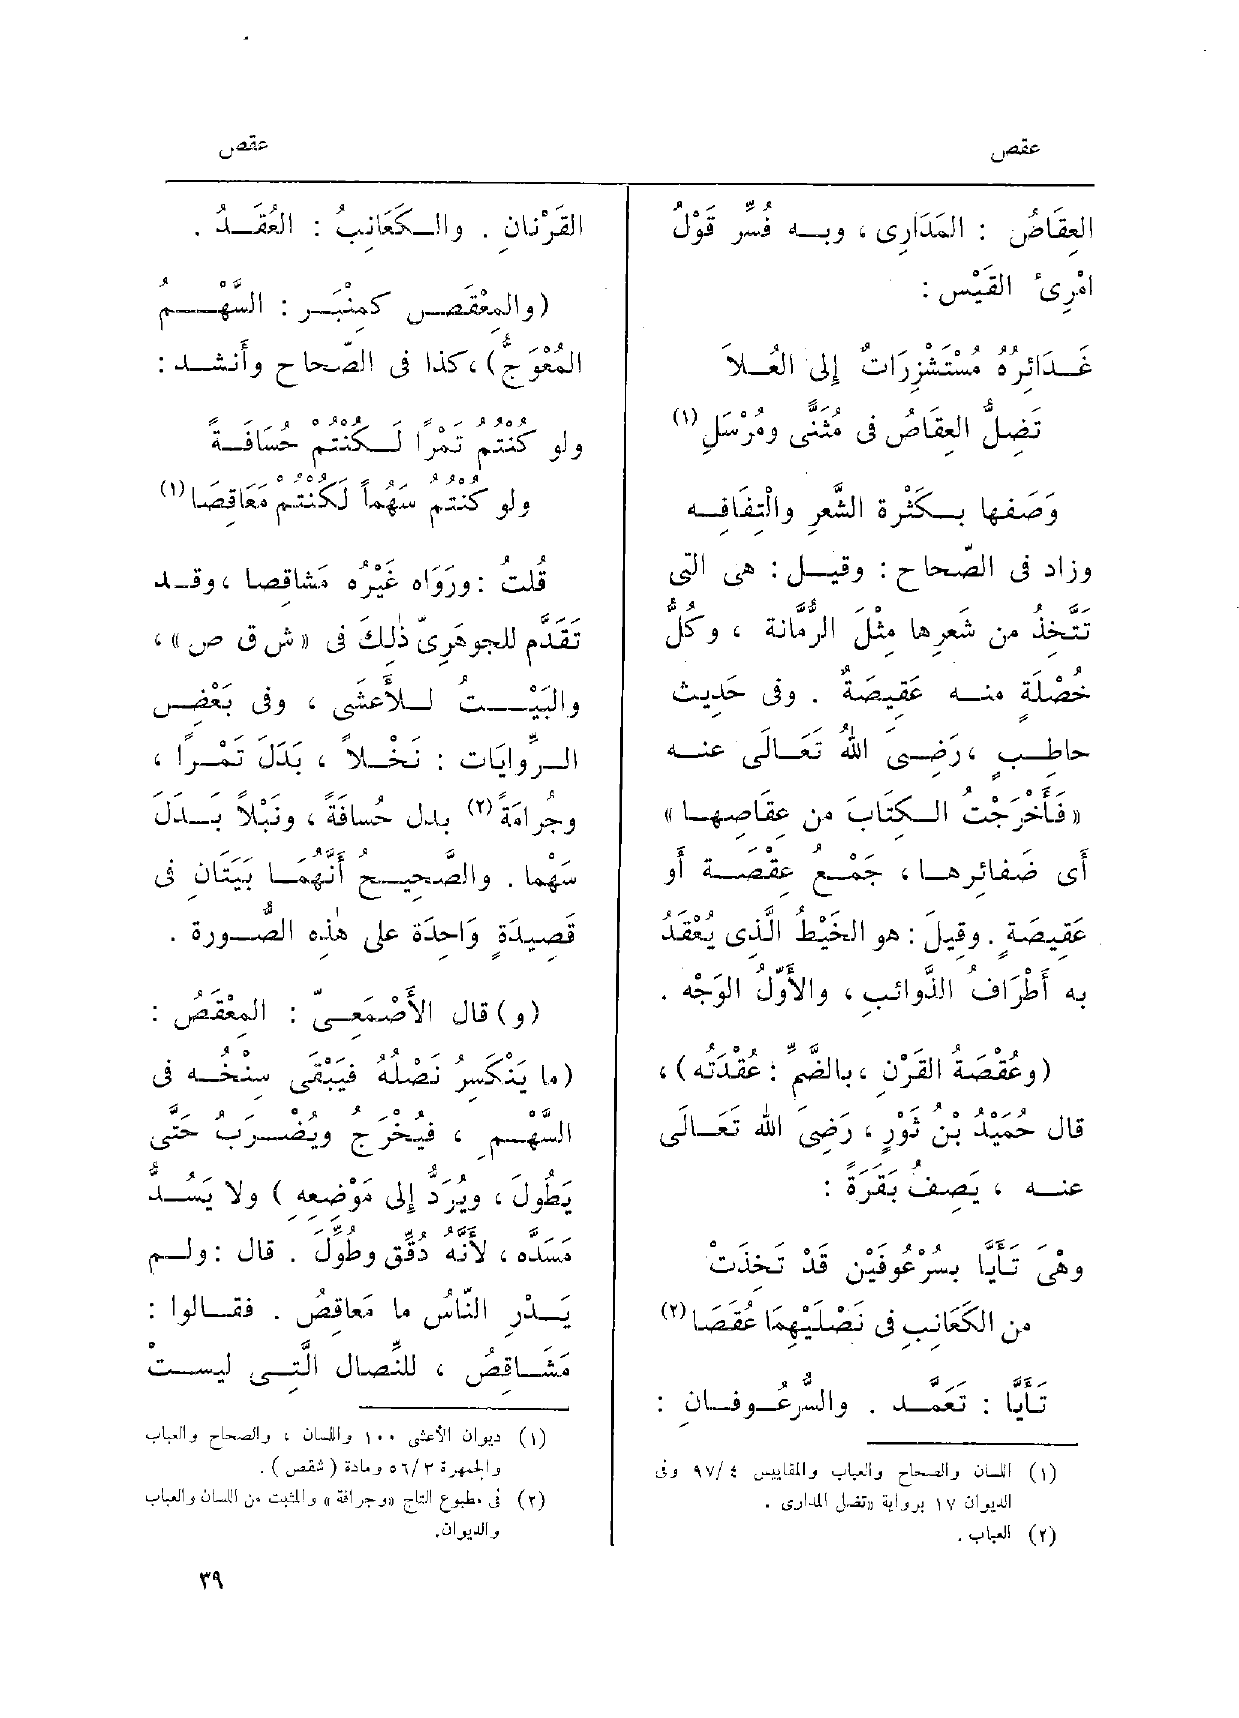 عقص
عقص
العِقَاصُ : المَدَارِى ، وبــه فُسِّر قَوْلُ
امْرِىءِ القَيْس :
غَــدائِرُهُ مُسْتَشْزِرَاتٌ إِلى العُــلاَ
تَضِلُّ العِقَاصُ فى مُثَنًّى ومُرْسَلِ (١)
وَصَفها بِــكَثْرة الشَّعرِ والْتِفَافِــه
وزاد فى الصّحاح : وقيــل : هى التى
تَتَّخِذُ من شَعرِها مِثْلَ الرُّمّانة ، وكلُّ
خُصْلَةٍ منــه عَقِيصَةٌ . وفى حَدِيث
حاطِــبٍ ، رَضِــىَ اللهُ تَعَــالَى عنــه
« فأَخْرَجْتُ الــكِتَابَ من عِقَاصِهــا »
أَى ضَفائِرِهــا ، جَمْــعُ عِقْصَــة أَو
عَقِيصَةٍ . وقِيلَ : هو الخَيْطُ الَّذِى يُعْقَدُ
به أَطْرَافُ الذَّوائب ، والأَوّلُ الوَجْه .
(وعُقْصَةُ القَرْنِ ، بالضّمّ : عُقْدَتُه) ،
قال حُمَيْدُ بْنُ ثَوْرٍ ، رَضِىَ الله تَعَــالَى
عنــه ، يَصِفُ بَقَرَةً :
وهْىَ تَأَيَّا بِسُرْعُوفَيْنِ قَدْ تَخِذَتْ
من الكَعَانِبِ فى نَصْلَيْهِمَا عُقَصَــا (٢)
تَأَيَّا : تَعَمَّــد . والسُّرْعُــوفَــانِ :
(١) اللسان والصحاح والعباب والمقاييس ٤ /٩٧ وفى
الديوان ١٧ برواية «تضل المدارى .
(٢) العباب .
القَرْنانِ . والــكَعَانِبُ : العُقَــدُ .
(والمِعْقَص كمِنْبَــر : السَّهْــمُ
المُعْوَجُّ) ، كذا فى الصّحاح وأَنشــد :
ولو كُنْتُم تَمْرًا لَــكُنْتُم حُسَافَــةً
ولو كُنْتُم سَهْماً لَكُنْتُم مَعَاقِصَــا (١)
قُلتُ : ورَوَاه غَيْرُه مَشَاقِصا ، وقــد
تَقَدَّم للجوهَرِىّ ذٰلكَ فى « ش ق ص » ،
والبَيْــتُ لــلأَعشى ، وفى بَعْضِ
الــرِّوايَات : نَخْــلاً ، بَدَلَ تَمْــرًا ،
وجُرامَةً (٢) بدل حُسافَةً ، ونَبْلاً بَــدَلَ
سَهْما . والصَّحِيــح أَنَّهُمَــا بَيْتَان فى
قَصِيدَةٍ وَاحِدَة على هٰذه الصُّــورة .
(و) قال الأَصْمَعِــىّ : المِعْقَصُ :
(ما يَنْكَسِرُ نَصْلُهُ فيَبْقَى سِنْخُــه فى
السَّهْــمِ ، فيُخْرَجُ ويُضْــرَبُ حَتَّى
يَطُولَ ، ويُرَدُّ إِلى مَوْضِعِه ) ولا يَسُــدُّ
مَسَدَّه ، لأَنَّه دُقِّق وطُوِّلَ . قال : ولــم
يَــدْرِ النّاسُ ما مَعَاقِصُ . فقــالوا :
مَشَــاقِصُ ، للنِّصال الَّتِــى ليســتْ
(١) ديوان الأعشى ١٠٠ واللسان ، والصحاح والعباب
والجمهرة ٣ /٥٦ ومادة ( شقص ) .
(٢) فى مطبوع التاج «وجرافة » والمثبت من اللسان والعباب
والديوان.
٣٩